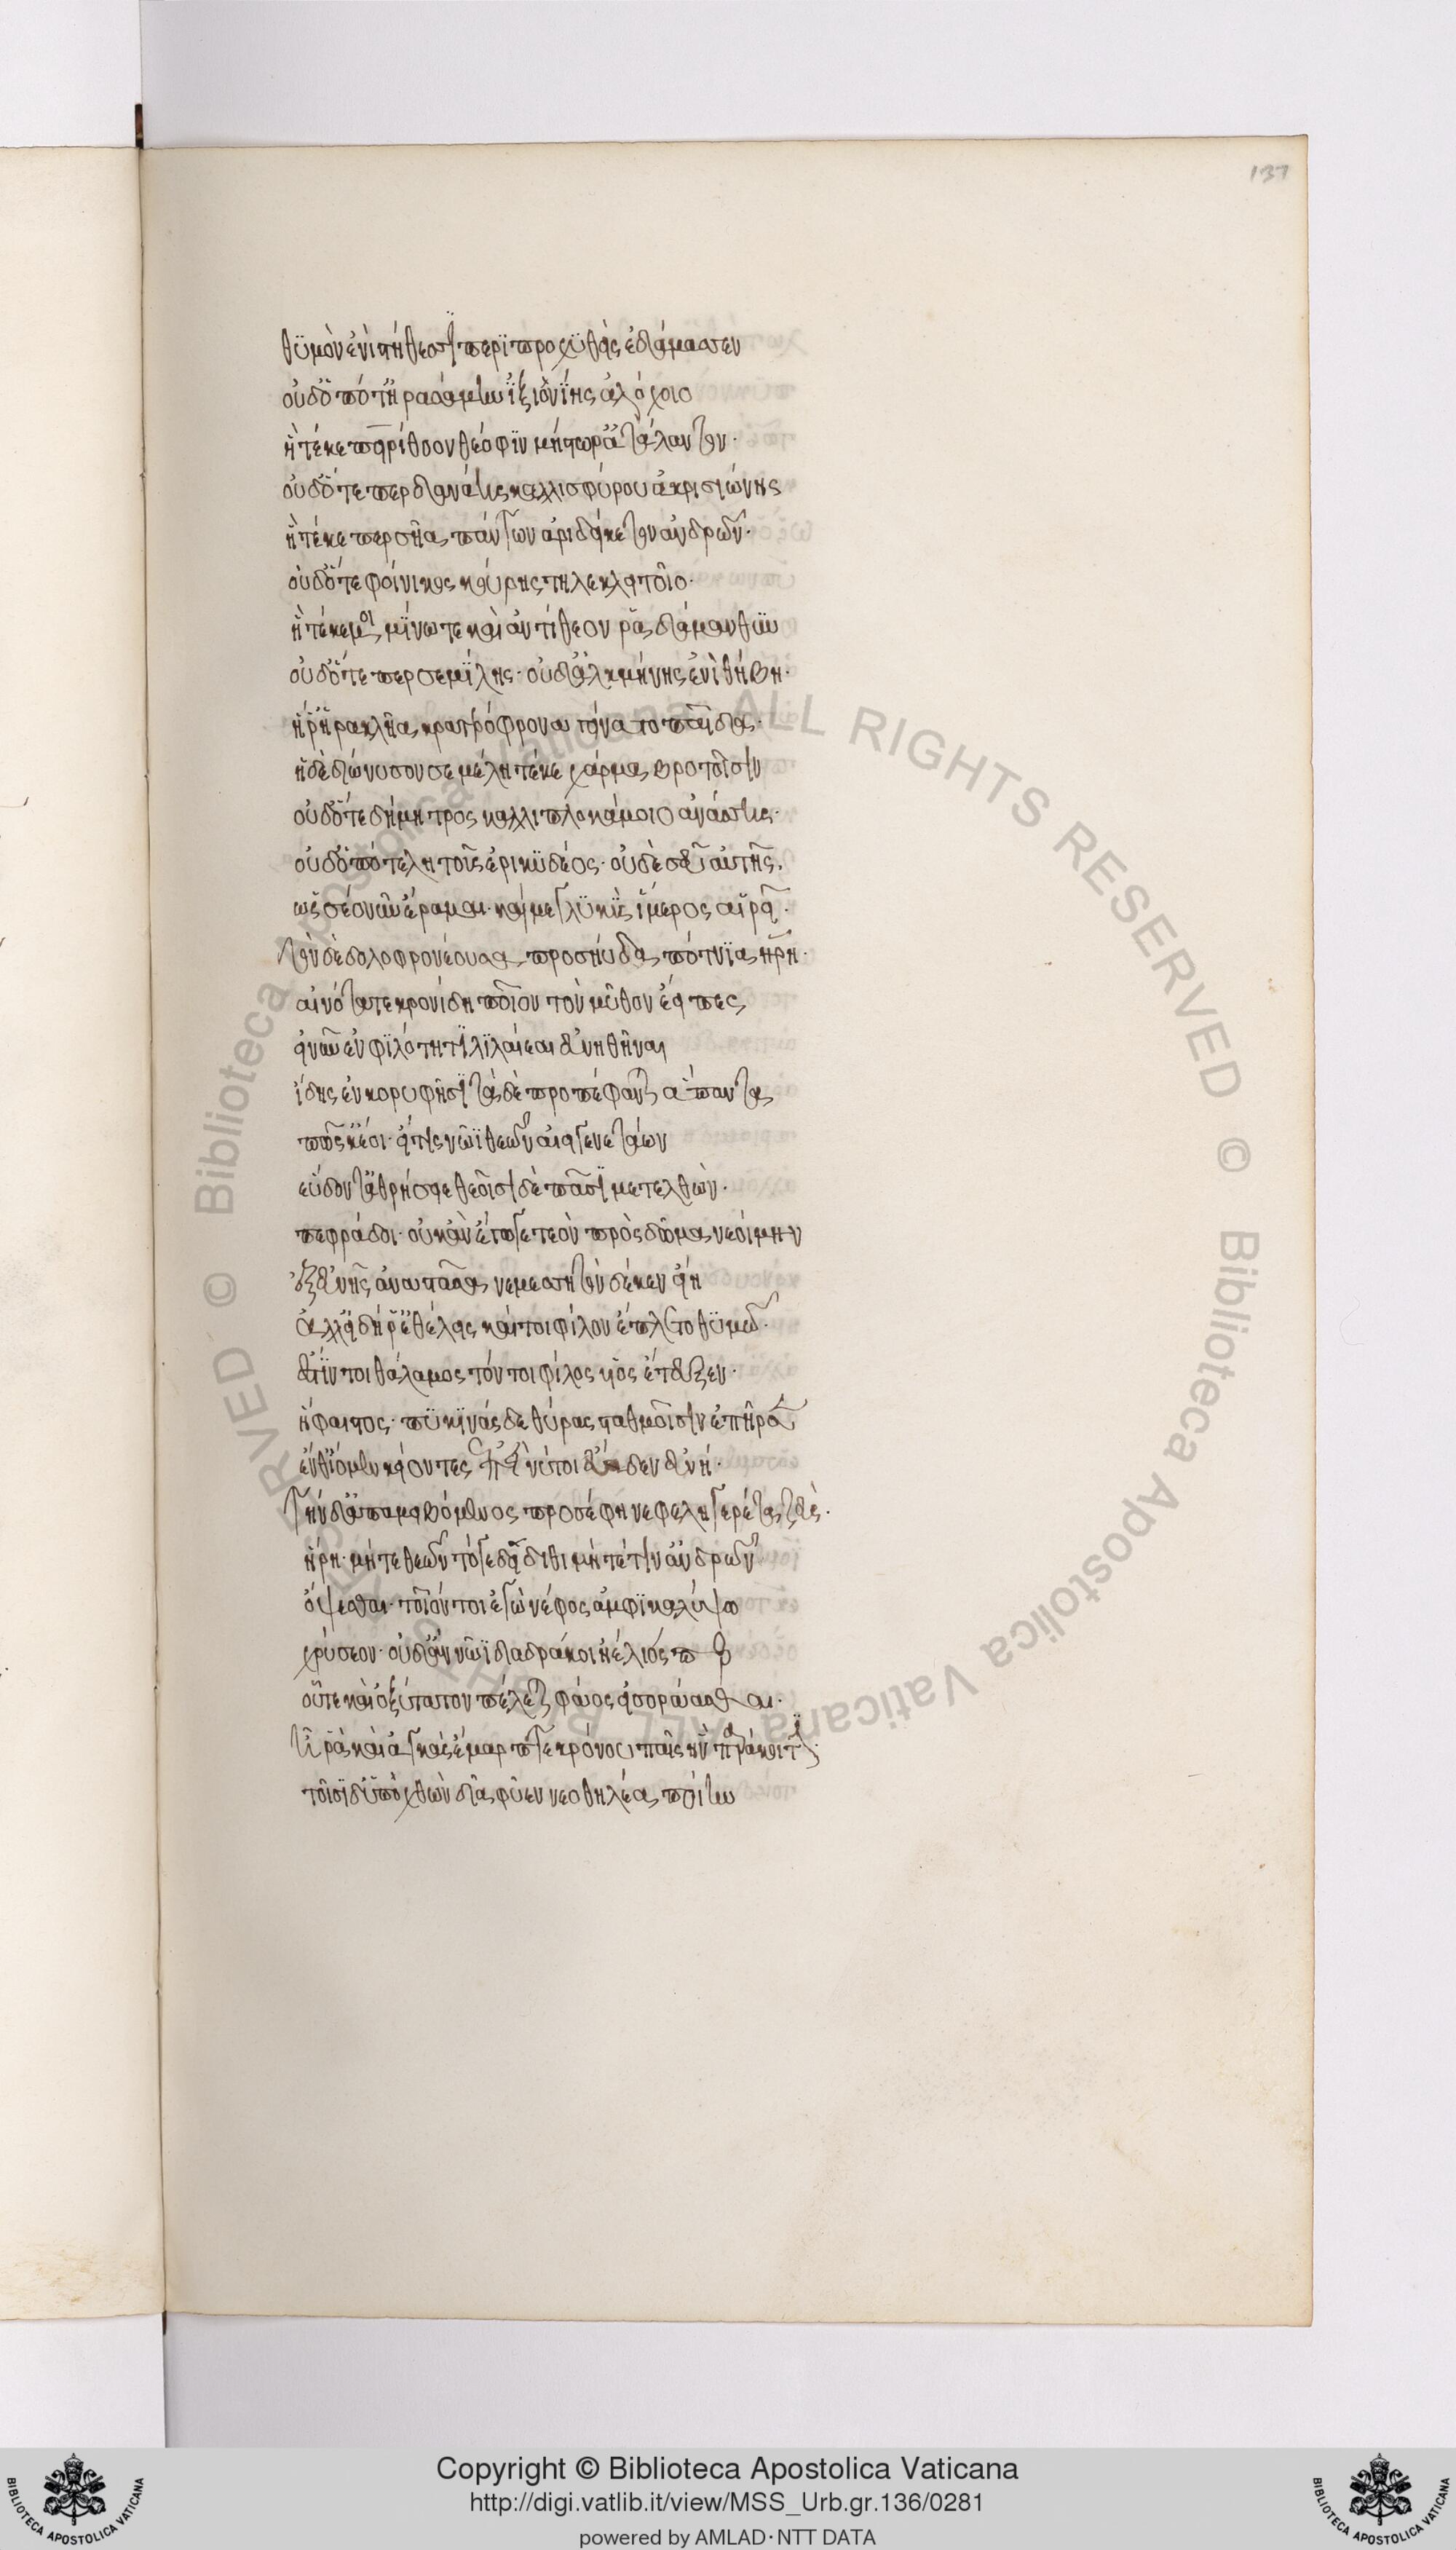 137
θϋμὸν ἐνὶ στήθεσσϊ περϊπροχϋθεὶς ἐδάμασσεν
οὐδ' ὁπότ' ἠρασάμην ἰξιονΐης ἀλόχοιο
ἣ τέκε πειρίθοον θεόφϊν μήστωρ' ἀτάλαντον·
οὐδ' ὅτε περ δανάης καλλισφύρου ἀκρισιώνης
ἣ τέκε περσῆα πάντων ἀριδείκετον ἀνδρῶν·
οὐδ' ὅτε φοίνικος κούρης τηλεκλειτοῖο·
ἣ τέκε μοι μίνω τε καὶ ἀντίθεον ῥαδάμανθϋν
οὐδ' ὅτε περ σεμέλης· οὐδ' ἀλκμήνης ἐνὶ θήβη·
ἥ ῥ' ἡρακλῆα κρατερόφρονα γείνατο παῖδα·
ἡ δὲ διώνυσον σεμέλη τέκε χάρμα βροτοῖσϊν
οὐδ' ὅτε δήμητρος καλλιπλοκάμοιο ἀνάσσης·
οὐδ' ὁπότε λητοῦς ἐρικϋδέος· οὐδὲ σεῦ αὐτῆς.
ὡς σέο νῦν ἔραμαι· καί με γλϋκϋς ἵμερος αἱρεῖ·
τὸν δὲ δολοφρονέουσα προσηύδα πότνϊα ἥρη·
αἰνότατε κρονίδη ποῖον τὸν μῦθον ἔειπες
εἰ νῦν ἐν φϊλότητϊ λϊλαίεαι εὐνηθῆναι
ἴδης ἐν κορυφῆσϊ τὰ δὲ προπέφανται ἅπαντα
πῶς κ' ἔοι· εἴ τίς νῶϊ θεῶν αἰειγενετάων
εὕδοντ' ἀθρήσειε θεοῖσϊ δὲ πᾶσϊ μετελθὼν·
πεφράδοι· οὐκ ἂν ἔγωγε τεὸν πρὸς δῶμα νεοίμην
ἐξ εὐνῆς ἀνστᾶσα νεμεσσητὸν δέ κεν εἴη
ἀλλ' εἰ δή ῥ' ἐθέλεις καί τοι φίλον ἔπλετο θϋμῶ·
ἔστϊν τοι θάλαμος τόν τοι φίλος υἱὸς ἔτευξεν·
ἥφαιστος· πϋκϊνάς δε θύρας σταθμοῖσϊν ἐπῆρσε
ἔνθ' ἴομεν κείοντες ἐπεί νύ τοι εὔαδεν εὐνή·
τὴν δ' ἀπαμειβόμενος προσέφη νεφεληγερέτα ζεύς·
ἥρη· μήτε θεῶν τόγε δείδιθι μήτέ τϊν' ἀνδρῶν
ὄψεσθαι· τοῖόν τοι ἐγὼ νέφος ἀμφϊκαλύψω
χρύσεον· οὐδ' ἂν νῶϊ διαδράκοι ἠέλιός περ
οὗτε καὶ ὀξύτατον πέλεται φάος εἰσοράασθαι·
ἦ ῥα καὶ ἀγκὰς ἔμαρπτε κρόνου παῖς ἣν παράκοιτϊν·
τοῖσϊ δ' ὑπὸ χθὼν δῖα φύεν νεοθηλέα ποίην
Copyright © Biblioteca Apostolica Vaticana
http://digi.vatlib.it/view/MSS_Urb.gr.136/0281
powered by AMLAD·NTT DATA